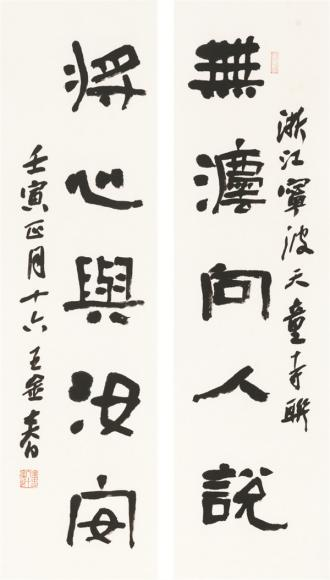 浙江寧波天童寺聯
無灋向人說
將心與汝安
壬寅正月十六王金春